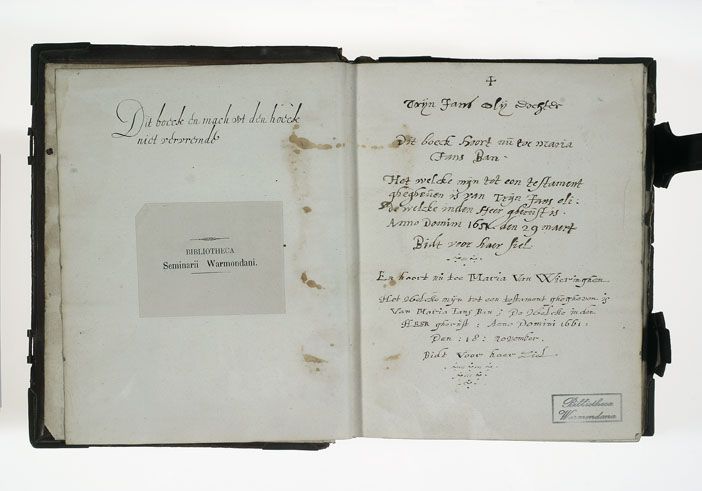 Dit boeck en mach vvt den hoeck
niet vervremde
BIBLIOTHECA
Seminarii Warmondani.
Trijn Jans Olij dochter
Dit boeck hoort nu toe maria
Jans Ban.
Het welcke mijn tot een testament
ghegheven is van Trijn Jans oli:
De welcke inden Heer gherust is.
Anno Domini den 29 maert
Bidt voor haer siel
En hoort nu toe Maria Van Wieringhen
Het Welcke mijn tot een testament ghegheven is
Van Maria Jans Ban : De Welcke inden
Heer gherust : Anno Domini 1661.
Den : 18 : november.
Bidt Voor haer Ziel
Bibliotheca
Warmondana